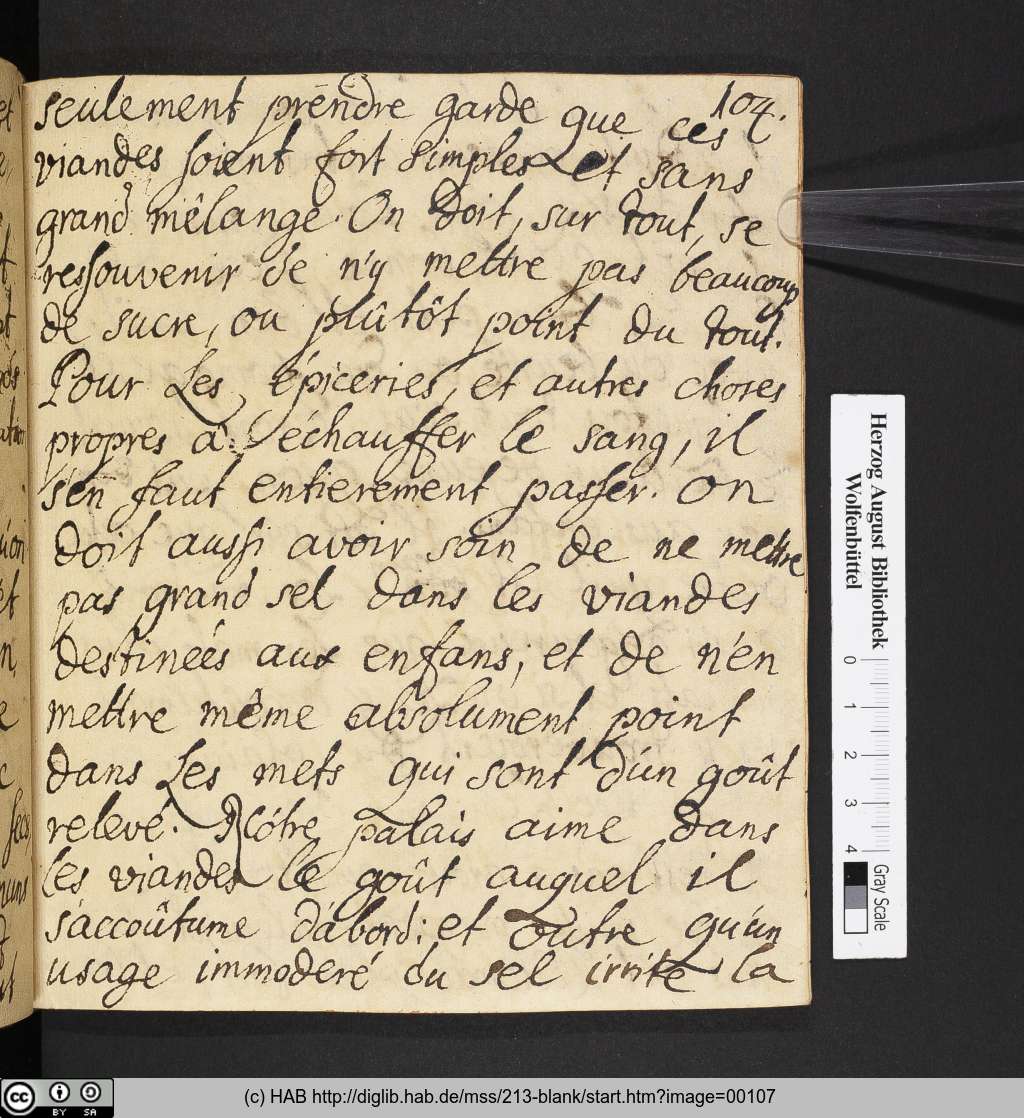 104.
seulement prendre garde que ces
viandes soient fort simples et sans
grand mêlange. On doit, sur tout, se
ressouvenir de n'y mettre pas beaucoup
de sucre, ou plûtôt point du tout.
Pour Les épiceries, et autres choses
propres à échauffer le sang, il
s'en faut entierement passer. On
doit aussi avoir soin de ne mettre
pas grand sel dans les viandes
destinées aux enfans; et de n'en
mettre même absolument point
dans Les mets qui sont d'un goût
relevé. Nôtre palais aime dans
les viandes le goût auquel il
s'accoûtume d'abord: et outre qu'un
usage immoderé du sel irrite la
Herzog August Bibliothek
Wolfenbüttel
0 1 2 3 4
Gray Scale
cc BY SA
(c) HAB http://diglib.hab.de/mss/213-blank/start.htm?image=00107